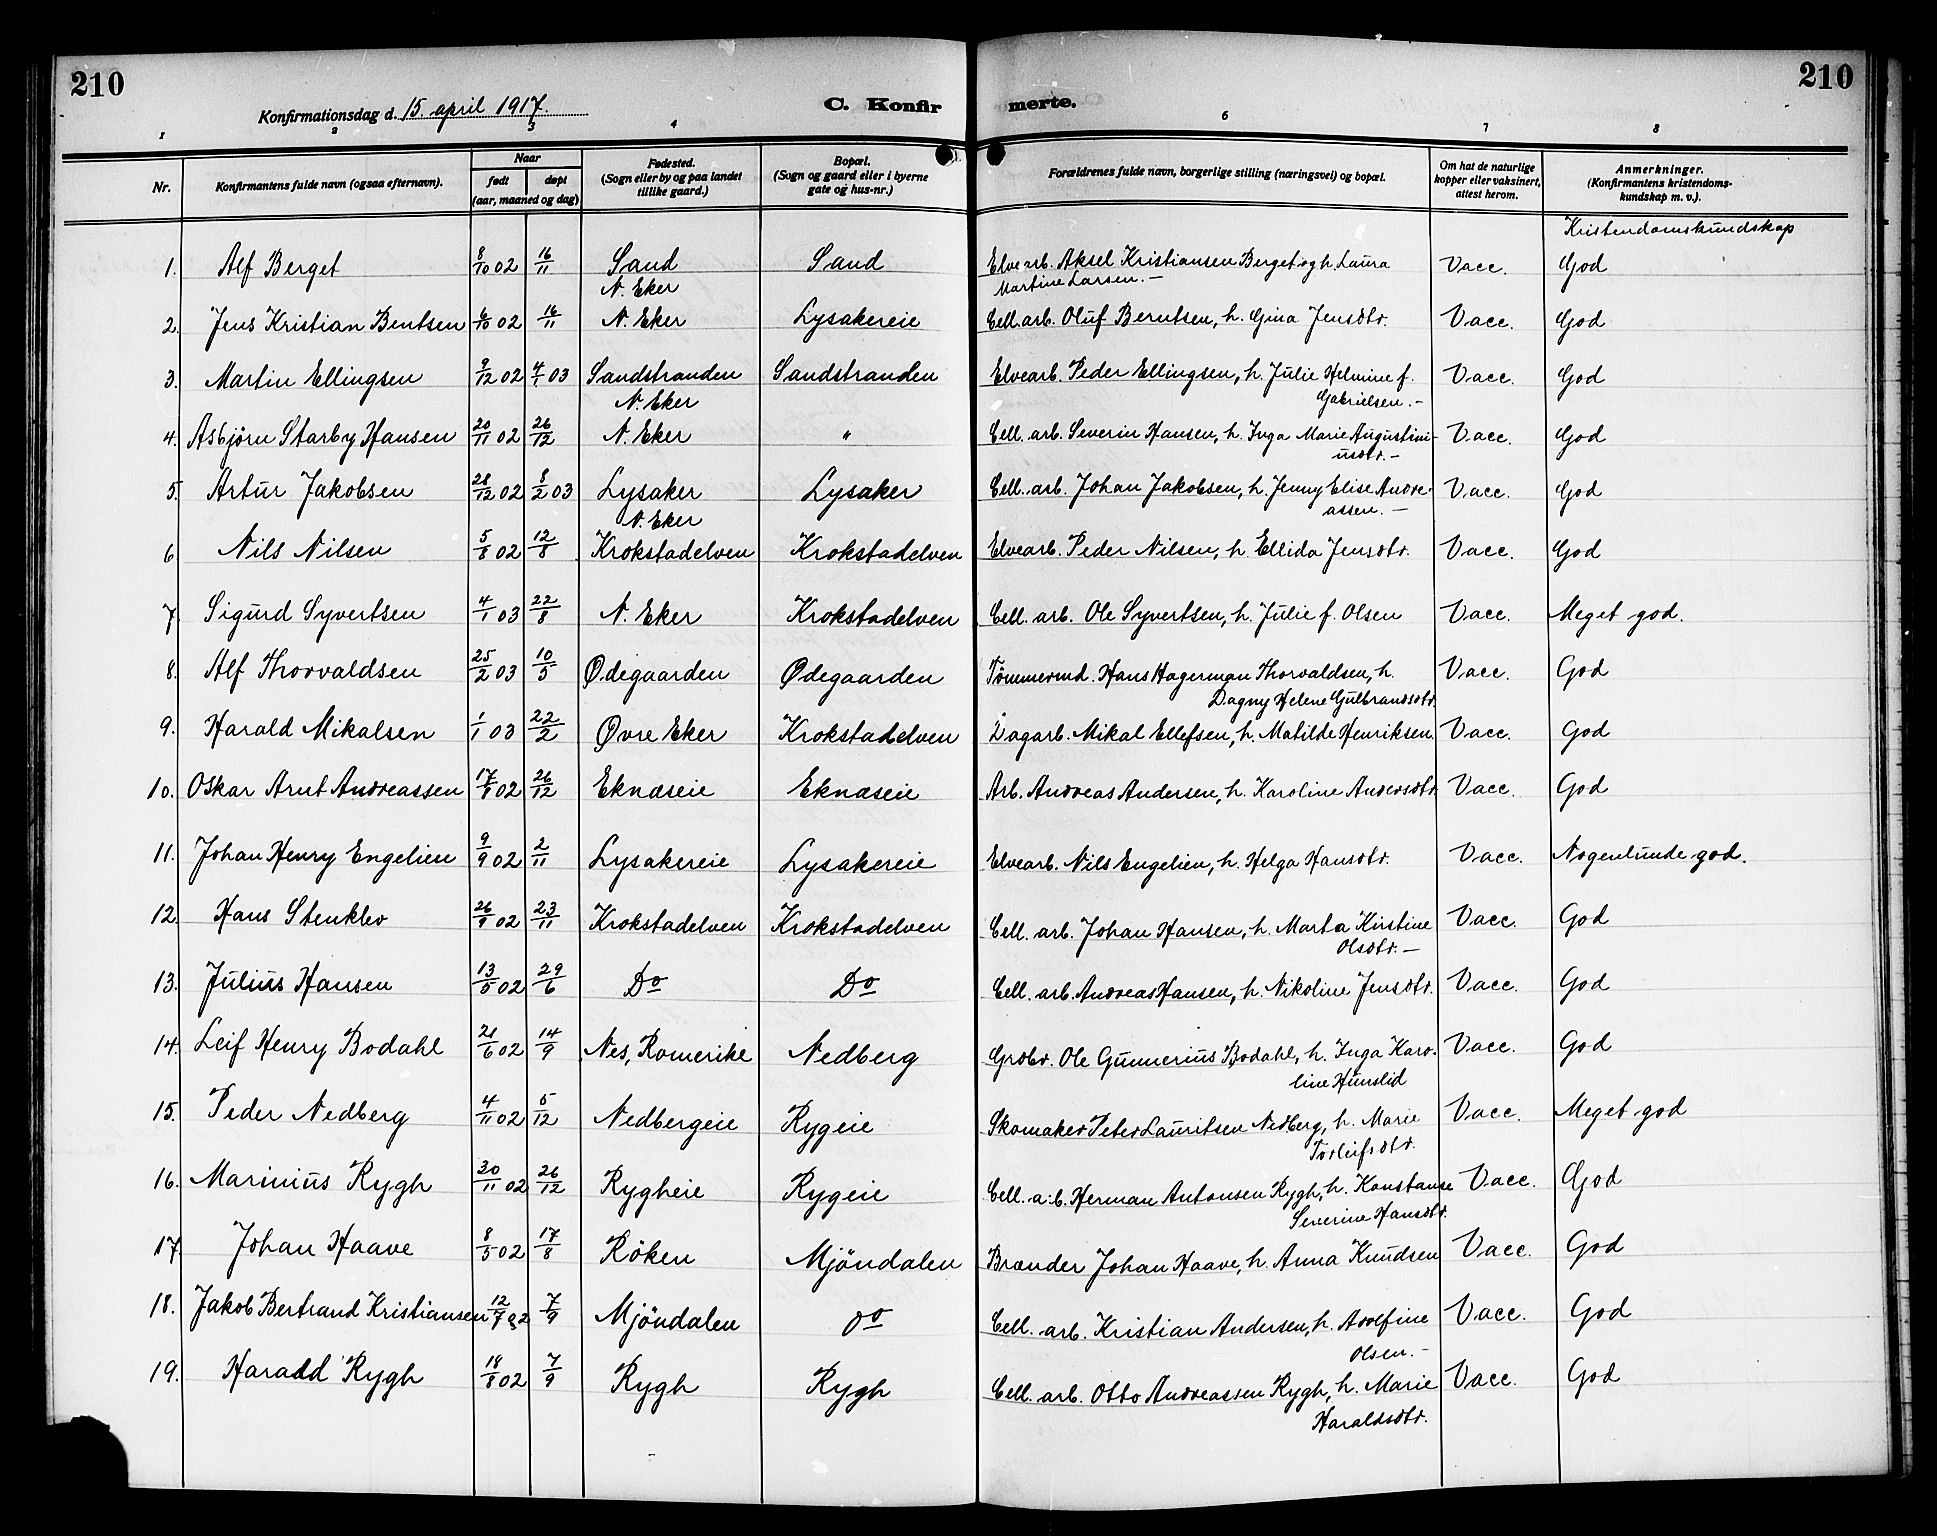 210
210
Konfirmationsdag d. 15. april 1917.
C. Konfir merte.
1 2 3 4 6 7 8
Nr.
Konfirmantens fulde navn (ogsaa efternavn).
Naar
født døpt
(aar, maaned og dag)
Fødested.
(Sogn eller by og paa landet
tillike gaard.)
Bopæl.
(Sogn og gaard eller i byerne
gate og hus-nr.)
Forældrenes fulde navn, borgerlige stilling (næringsvei) og bopæl.
Om hat de naturlige
kopper eller vaksinert,
attest herom.
Anmerkninger.
(Konfirmantens kristendoms-
kundskap m. v.).
Kristendomskundskap
1. Alf Berget 8/10 02 16/11 Sand Sand Elvearb. Aksel Kristiansen Berget og h. Laura Vacc. God
N. Eker Martine Larsen. —
2. Jens Kristian Bentsen 6/10 02 16/11 N. Eker Lysakereie Cell. arb. Oluf Berntsen, h. Gina Jensdtr. Vacc. God
3. Martin Ellingsen 9/12 02 4/1 03 Sandstranden Sandstranden Elvearb. Peder Ellingsen, h. Julie Helmine f. Vacc. God
N. Eker Gabrielsen. —
4. Asbjörn Starby Hansen 20/11 02 26/12 N. Eker " Cell. arb. Severin Hansen, h. Inga Marie Augustini- Vacc. God
usdtr. —
5. Artur Jakobsen 28/12 02 8/2 03 Lysaker Lysaker Cell. arb. Johan Jakobsen, h. Jenny Elise Andre- Vacc. God
N. Eker assen. —
6 Nils Nilsen 5/8 02 12/8 Krokstadelven Krokstadelven Elvearb. Peder Nilsen, h. Ellida Jensdtr. Vacc. God
7 Sigurd Syvertsen 4/1 03 22/8 N. Eker Krokstadelven Cell. arb. Ole Syvertsen, h. Julie f. Olsen Vacc. Meget god.
8. Alf Thorvaldsen 25/2 03 10/5 Ødegaarden Ødegaarden Tømmermd. Hans Hagerman Thorvaldsen, h. Vacc. God
Dagny Helene Gulbransdtr.
9. Harald Mikalsen 1/1 03 22/2 Øvre Eker Krokstadelven Dagarb. Mikal Ellefsen, h. Matilde Henriksen. Vacc. God
10. Oskar Arnt Andreassen 17/8 02 26/12 Eknæseie Eknæseie Arb. Andreas Andersen, h. Karoline Andersdtr. Vacc. God
11. Johan Henry Engelien 9/9 02 2/11 Lysakereie Lysakereie Elvearb. Nils Engelien, h. Helga Hansdtr. Vacc. Nogenlunde god.
12. Hans Stenklev 26/9 02 23/11 Krokstadelven Krokstadelven Cell. arb. Johan Hansen, h. Marta Kirstine Vacc. God
Olsdtr. —
13. Julius Hansen 13/5 02 29/6 Do Do Cell. arb. Andreas Hansen, h. Nikoline Jensdtr. Vacc. God
14. Leif Henry Bodahl 21/6 02 14/9 Nes, Romerike Nedberg Grdbr. Ole Gunnerius Bodahl, h. Inga Karo- Vacc. God
line Hunslid
15. Peder Nedberg 4/11 02 5/12 Nedbergeie Rygeie Skomaker Peter Lauritsen Nedberg, h. Marie Vacc. Meget god
Torleifsdtr.
16. Marinius Rygh 30/11 02 26/12 Rygheie Rygeie Cell. arb. Herman Antonsen Rygh, h. Konstanse Vacc. God
Severine Hansdtr.
17. Johan Haave 8/5 02 17/8 Röken Mjöndalen Brænder Johan Haave, h. Anna Knudsen Vacc. God
18. Jakob Bertrand Kristiansen 12/7 02 7/9 Mjöndalen do Cell. arb. Kristian Andersen, h. Adolfine Vacc. God
Olsen. —
19. Haradd Rygh 18/8 02 7/9 Rygh Rygh Cell. arb. Otto Andreassen Rygh, h. Marie Vacc. God
Haraldsdtr.